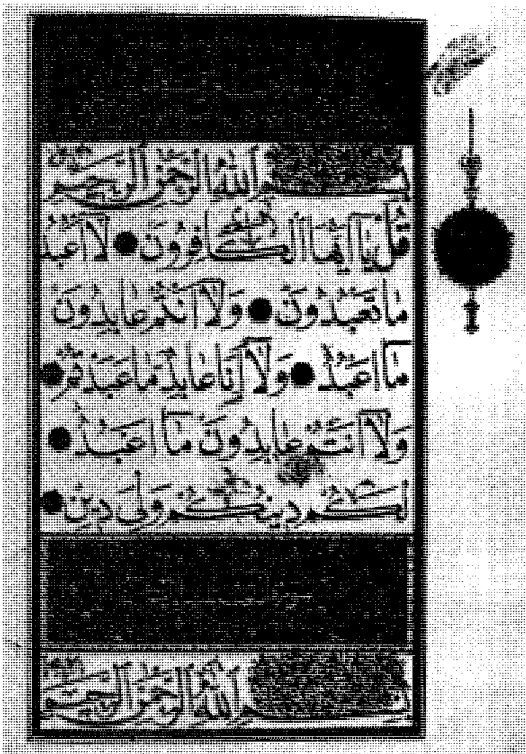 بسم الله الرحمن الرحيم
قل يا ايها الكافرون لا اعبد
ما تعبدون ولا انتم عابدون
ما اعبد ولا انا عابد ما عبدتم
ولا انتم عابدون ما اعبد
لكم دينكم ولي دين
بسم الله الرحمن الرحيم